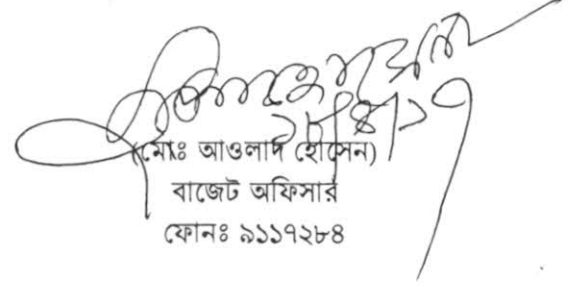 (মোঃ আওলাদ হোসেন)
বাজেট অফিসার
ফোনঃ ৯১১৭২৮৪